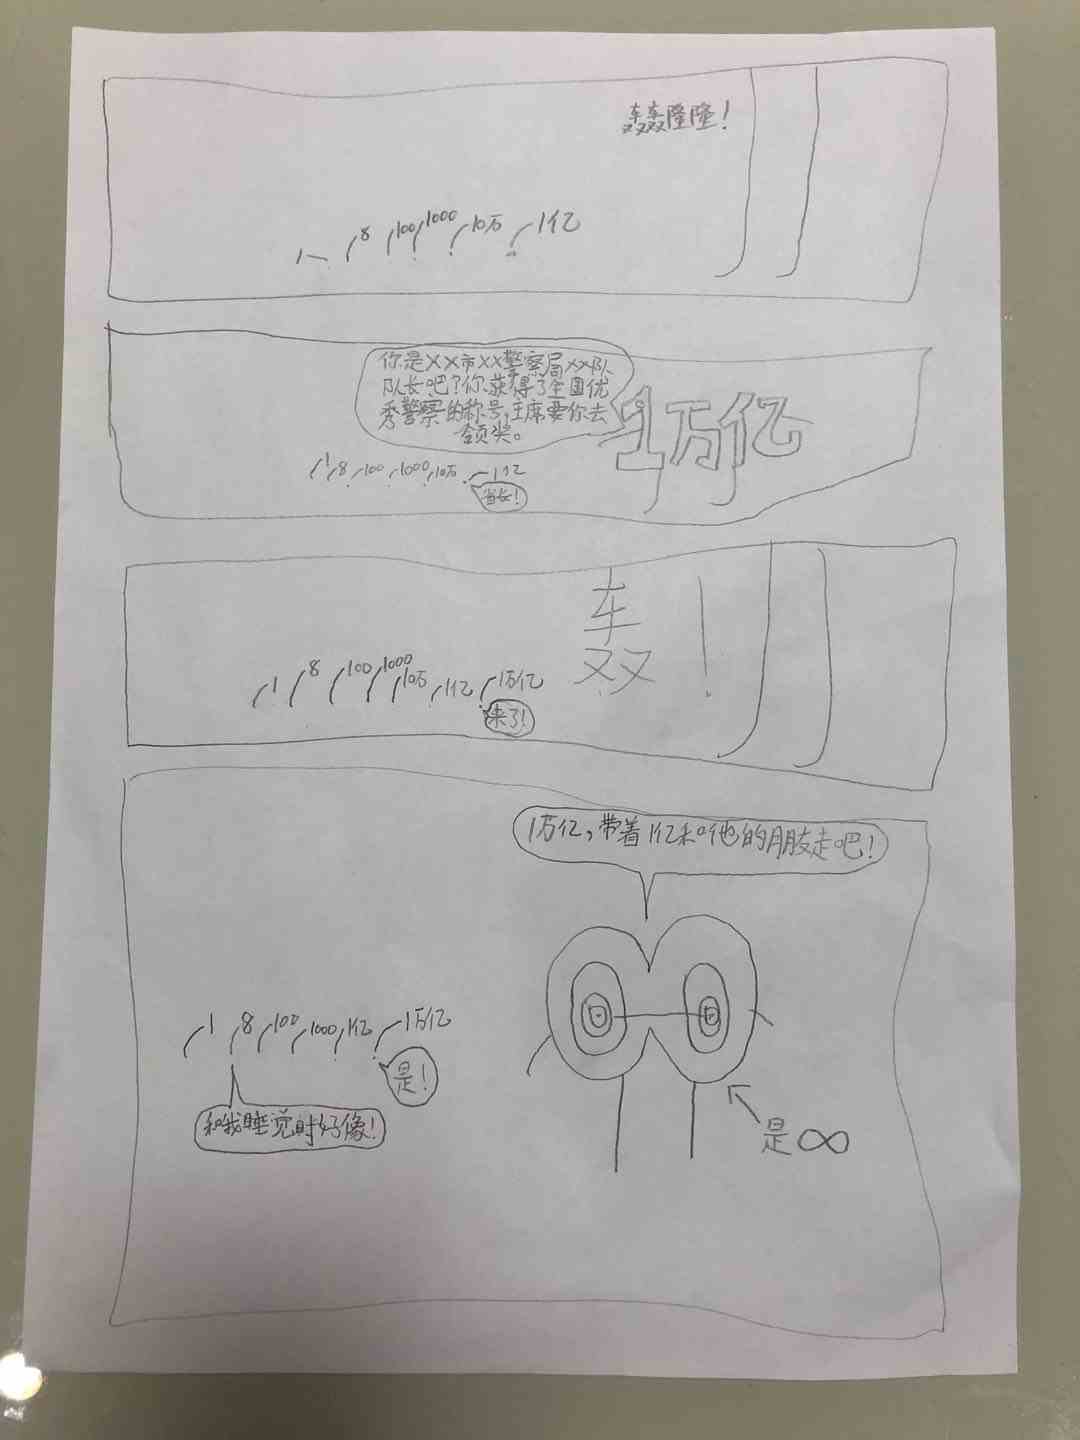 轰轰隆隆！
1
8
100
1000
10万
1亿
你是××市××警察局××队
队长吧？你获得了全国优
秀警察的称号，主席要你去
领奖。
1万亿
1
8
100
1000
10万
1亿
省长！
轰！
1
8
100
1000
10万
1亿
1万亿
来了！
1万亿，带着1亿和他的朋友走吧！
1
8
100
1000
1亿
1万亿
是！
和我睡觉时好像！
是∞